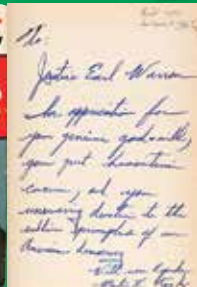 To:
Justice Earl Warren
In appreciation for
your genuine good will,
your great humanitarian
concern, and your
unswerving devotion to the
sublime principles of our
American democracy
With warm regards
Martin L. King Jr.